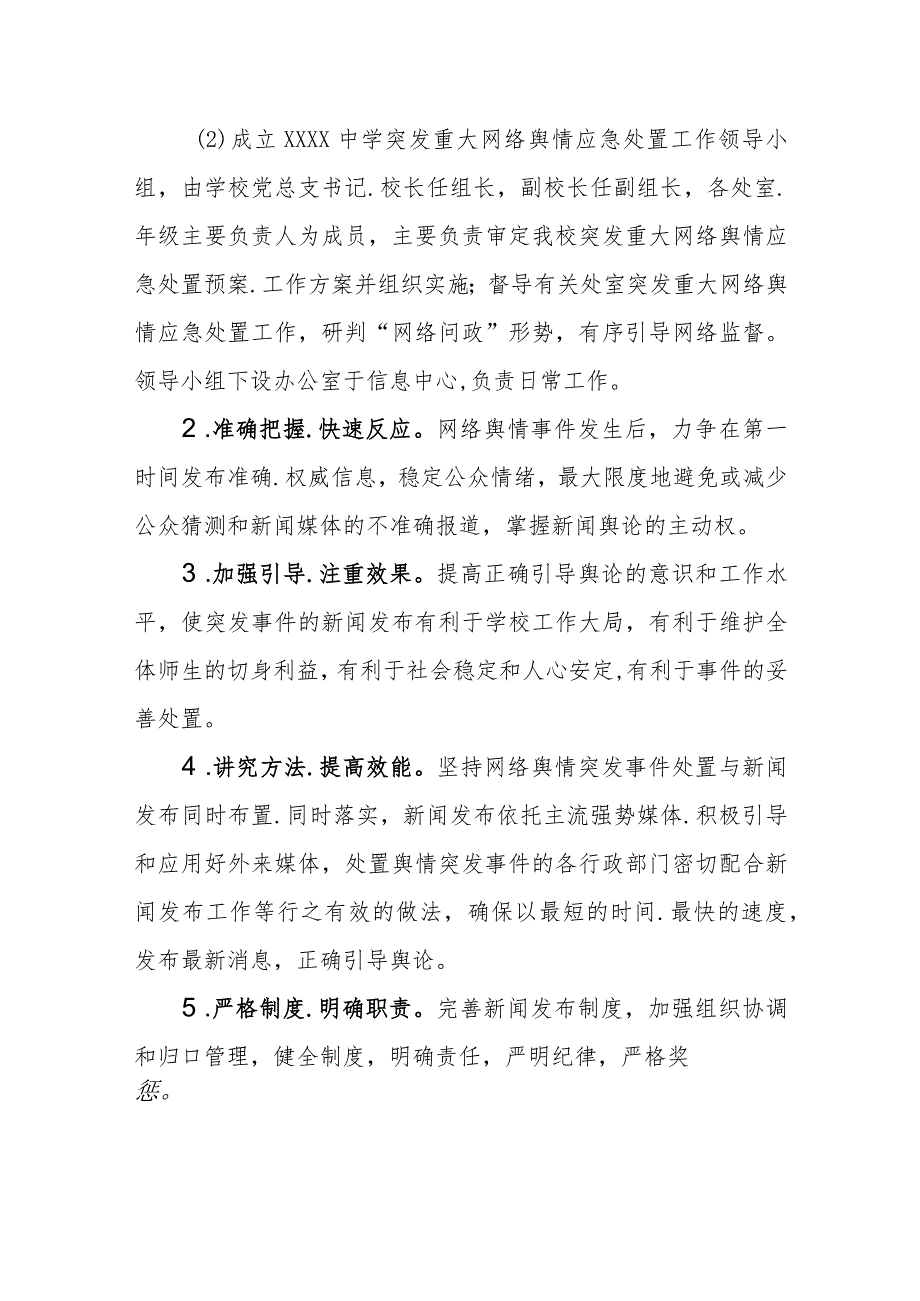 (2)成立 XXXX 中学突发重大网络舆情应急处置工作领导小
组，由学校党总支书记.校长任组长，副校长任副组长，各处室.
年级主要负责人为成员，主要负责审定我校突发重大网络舆情应
急处置预案.工作方案并组织实施；督导有关处室突发重大网络舆
情应急处置工作，研判“网络问政”形势，有序引导网络监督。
领导小组下设办公室于信息中心,负责日常工作。
2 .准确把握.快速反应。网络舆情事件发生后，力争在第一
时间发布准确.权威信息，稳定公众情绪，最大限度地避免或减少
公众猜测和新闻媒体的不准确报道，掌握新闻舆论的主动权。
3 .加强引导.注重效果。提高正确引导舆论的意识和工作水
平，使突发事件的新闻发布有利于学校工作大局，有利于维护全
体师生的切身利益，有利于社会稳定和人心安定,有利于事件的妥
善处置。
4 .讲究方法.提高效能。坚持网络舆情突发事件处置与新闻
发布同时布置.同时落实，新闻发布依托主流强势媒体.积极引导
和应用好外来媒体，处置舆情突发事件的各行政部门密切配合新
闻发布工作等行之有效的做法，确保以最短的时间.最快的速度，
发布最新消息，正确引导舆论。
5 .严格制度.明确职责。完善新闻发布制度，加强组织协调
和归口管理，健全制度，明确责任，严明纪律，严格奖
惩。